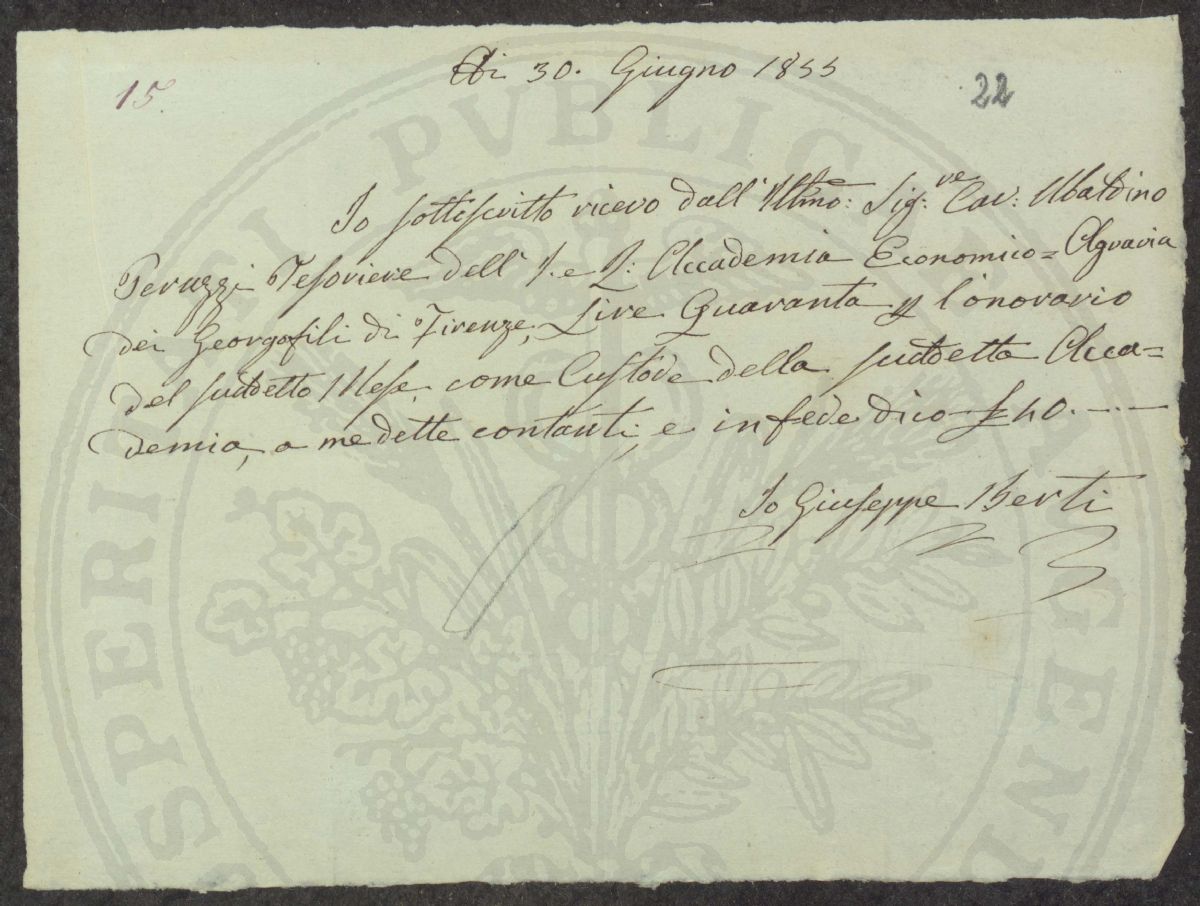 Adi 30. Giugno 1855
15
22
Io sottoscritto ricevo dall'Illmo: Sig:re Cav: Ubaldino
Peruzzi Tesoriere dell'I. e R: Accademia Economico=Agraria
dei Georgofili di Firenze, Lire Quaranta p l'onorario
del suddetto Mese, come Custode della suddetta Acca=
demia, a me dette contanti, e in fede dico £ 40. - . -
Io Giuseppe Berti
PROSPERITATI PVBLICAE AVGENDAE